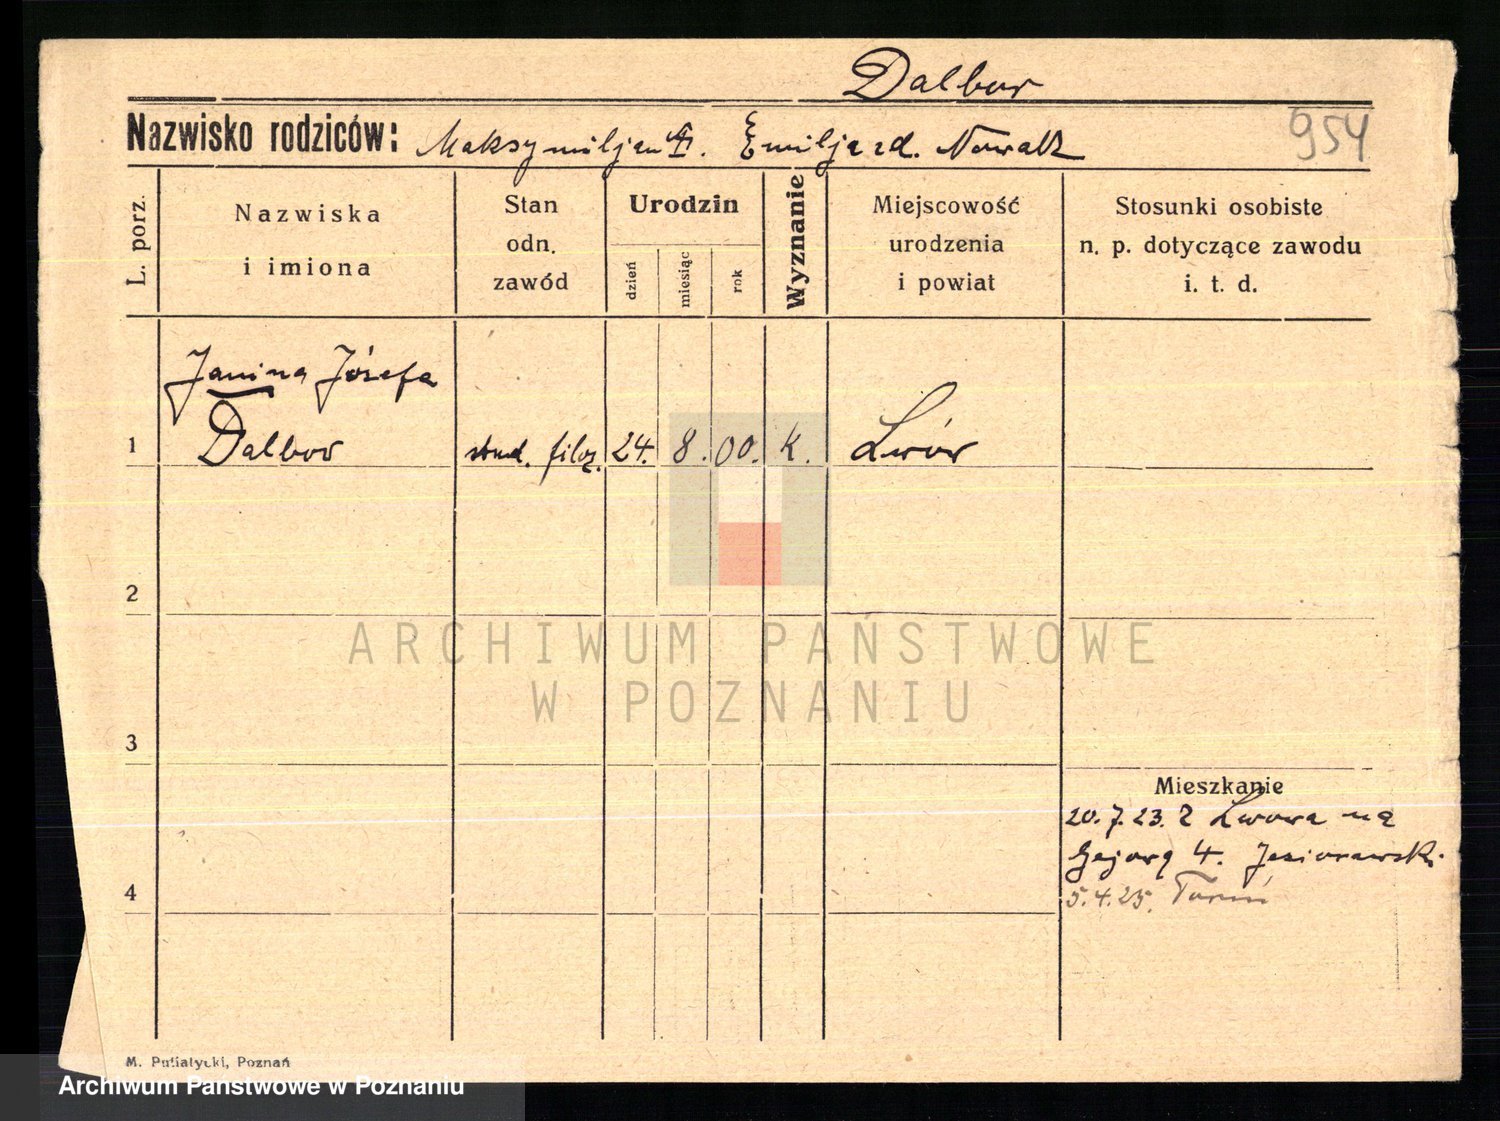 Dalbor
Nazwisko rodziców: Maksymiljan I. Emilja zd. Nowak
954
L. porz.
Nazwiska
i imiona
Stan
odn.
zawód
Urodzin
dzień
miesiąc
rok
Wyznanie
Miejscowość
urodzenia
i powiat
Stosunki osobiste
n. p. dotyczące zawodu
i. t. d.
Janina Józefa
1 Dalbor stud. filoz. 24. 8. 00. k. Lwów
2
ARCHIWUM PAŃSTWOWE
W POZNANIU
3
Mieszkanie
20.7.23. z Lwowa na
4. Jesiorawski.
4
5.4.25. Toruń
M. Putiatycki, Poznań
Archiwum Państwowe w Poznaniu